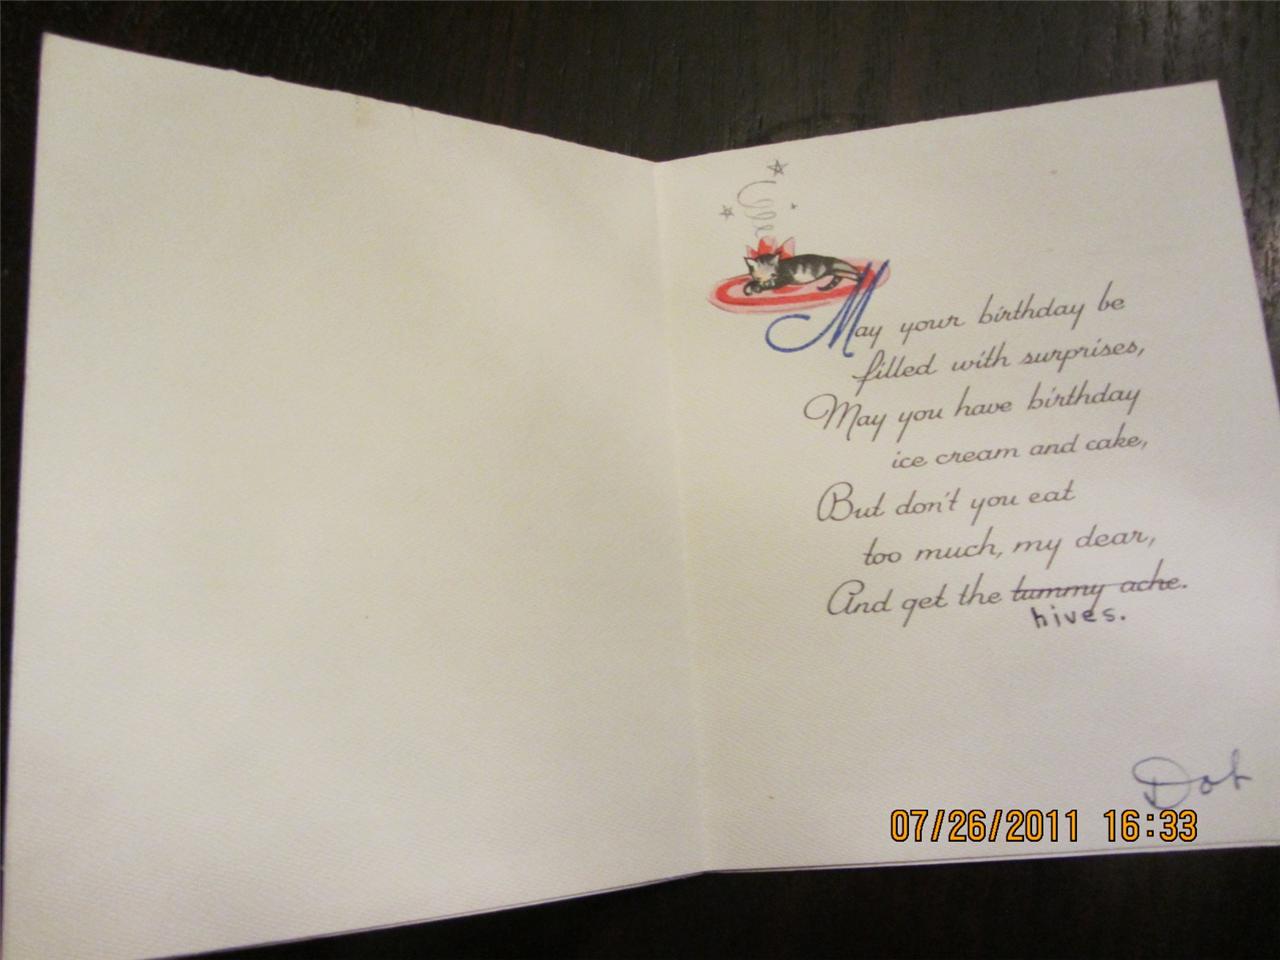 May your birthday be
filled with surprises,
May you have birthday
ice cream and cake,
But don't you eat
too much, my dear,
And get the tummy ache.
hives.
Dot
07/26/2011 16:33